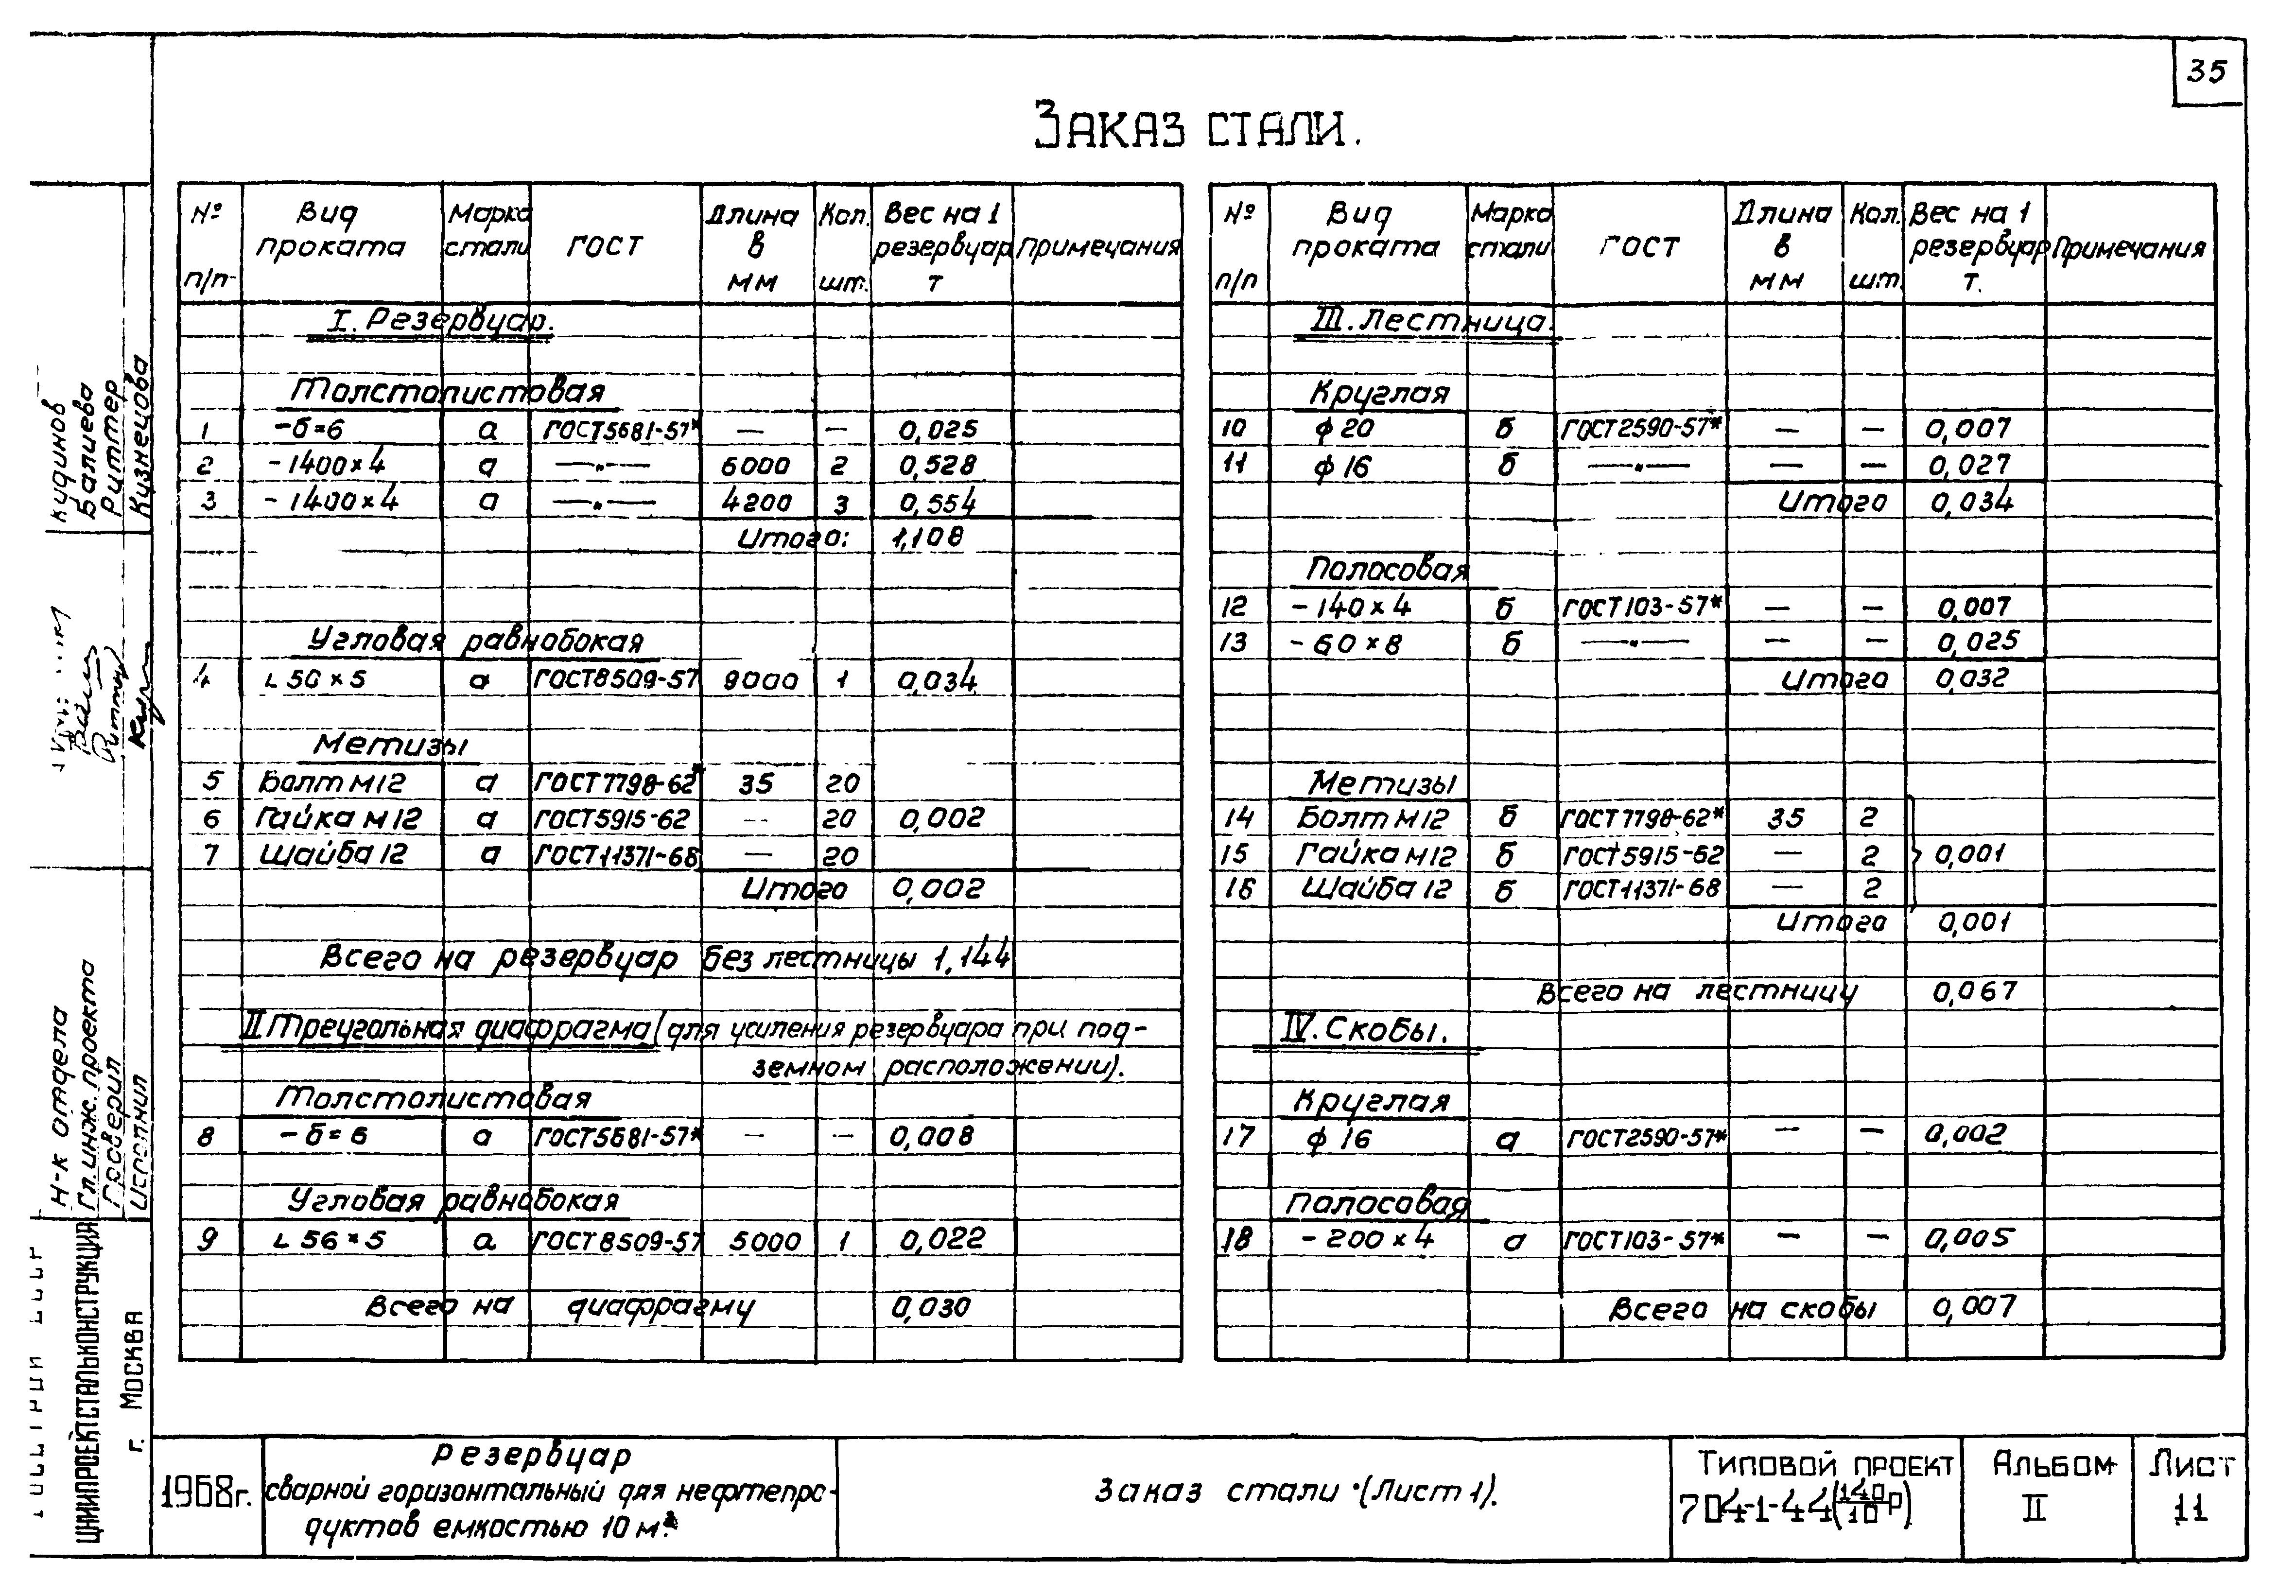 35
Заказ стали.
№ п/п Вид проката Марка стали ГОСТ Длина в мм Кол. шт. Вес на 1 резервуар т Примечания
I. Резервуар.
Толстолистовая
1 -б=6 а ГОСТ5681-57* — — 0,025
2 -1400×4 а —"— 6000 2 0,528
3 -1400×4 а —"— 4200 3 0,554
Итого: 1,108
Угловая равнобокая
4 L 50×5 а ГОСТ8509-57 9000 1 0,034
Метизы
5 Болт М12 а ГОСТ7798-62* 35 20
6 Гайка М12 а ГОСТ5915-62 — 20 0,002
7 Шайба 12 а ГОСТ11371-68 — 20
Итого 0,002
Всего на резервуар без лестницы 1,144
II Треугольная диафрагма (для усиления резервуара при под-
земном расположении).
Толстолистовая
8 -б=6 а ГОСТ5681-57* — — 0,008
Угловая равнобокая
9 L 56×5 а ГОСТ8509-57 5000 1 0,022
Всего на диафрагму 0,030
№ п/п Вид проката Марка стали ГОСТ Длина в мм Кол. шт. Вес на 1 резервуар т. Примечания
III. Лестница.
Круглая
10 ф 20 б ГОСТ2590-57* — — 0,007
11 ф 16 б —"— — — 0,027
Итого 0,034
Полосовая
12 -140×4 б ГОСТ103-57* — — 0,007
13 -60×8 б —"— — — 0,025
Итого 0,032
Метизы
14 Болт М12 б ГОСТ7798-62* 35 2
15 Гайка М12 б ГОСТ5915-62 — 2 0,001
16 Шайба 12 б ГОСТ11371-68 — 2
Итого 0,001
Всего на лестницу 0,067
IV. Скобы.
Круглая
17 ф 16 а ГОСТ2590-57* — — 0,002
Полосовая
18 -200×4 а ГОСТ103-57* — — 0,005
Всего на скобы 0,007
Н-к отдела Кудинов
Гл. инж. проекта Балиева
Проверил Риттер
Исполнил Кузнецова
ЦНИИПРОЕКТСТАЛЬКОНСТРУКЦИЯ
г. Москва
1968г.
Резервуар
сварной горизонтальный для нефтепро-
дуктов емкостью 10 м³
Заказ стали (Лист 1).
Типовой проект
704-1-44(140р/10)
Альбом
II
Лист
11